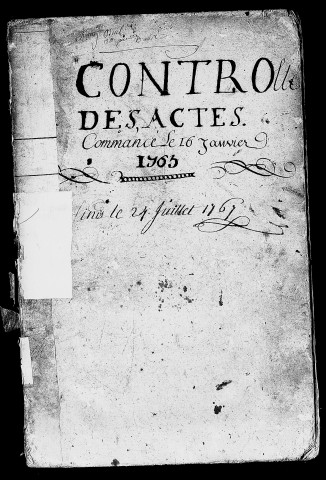 CONTROlle
DES ACTES.
Commancé Le 16 Janvier
1765
fini le 24 Juillet 1767